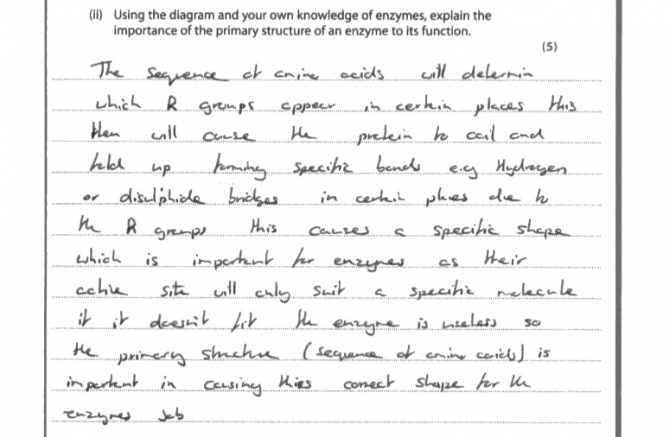 (ii) Using the diagram and your own knowledge of enzymes, explain the
importance of the primary structure of an enzyme to its function.
(5)
The sequence of amino acids will determin
which R groups appear in certain places this
then will cause the protein to coil and
fold up forming specific bonds e.g Hydrogen
or disulphide bridges in certain places due to
the R groups this causes a specific shape
which is important for enzymes as their
active site will only suit a specific molecule
if it doesn't fit the enzyme is useless so
the primary structure (sequence of amino acids) is
important in causing this correct shape for the
enzymes job